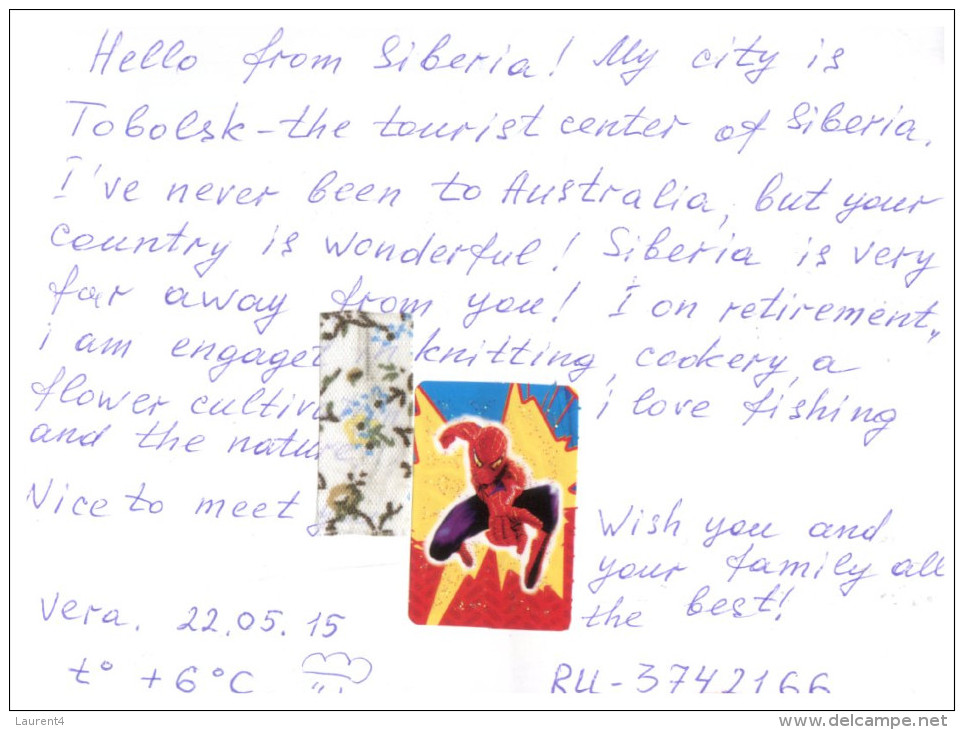 Hello from Siberia! My city is
Tobolsk - the tourist center of Siberia.
I've never been to Australia, but your
country is wonderful! Siberia is very
far away from you! I on retirement,
i am engaged in knitting, cookery, a
flower i love fishing
and the nature
Nice to meet
Wish you and
your family all
the best!
Vera. 22.05.15
t° +6°C
RU-3742166
Laurent4
www.delcampe.net